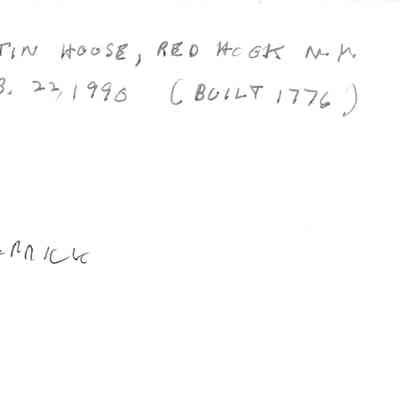 TIN HOUSE, RED HOOK N.Y.
B. 22, 1990 (BUILT 1776)
ERRICK